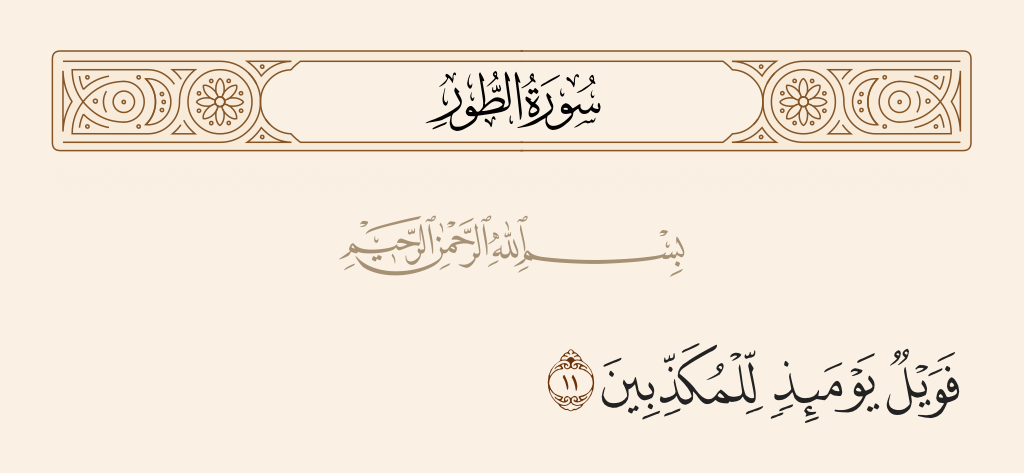 سُورَةُ الطُّورِ
بِسْمِ ٱللَّهِ ٱلرَّحْمَٰنِ ٱلرَّحِيمِ
فَوَيْلٌ يَوْمَئِذٍ لِّلْمُكَذِّبِينَ ١١